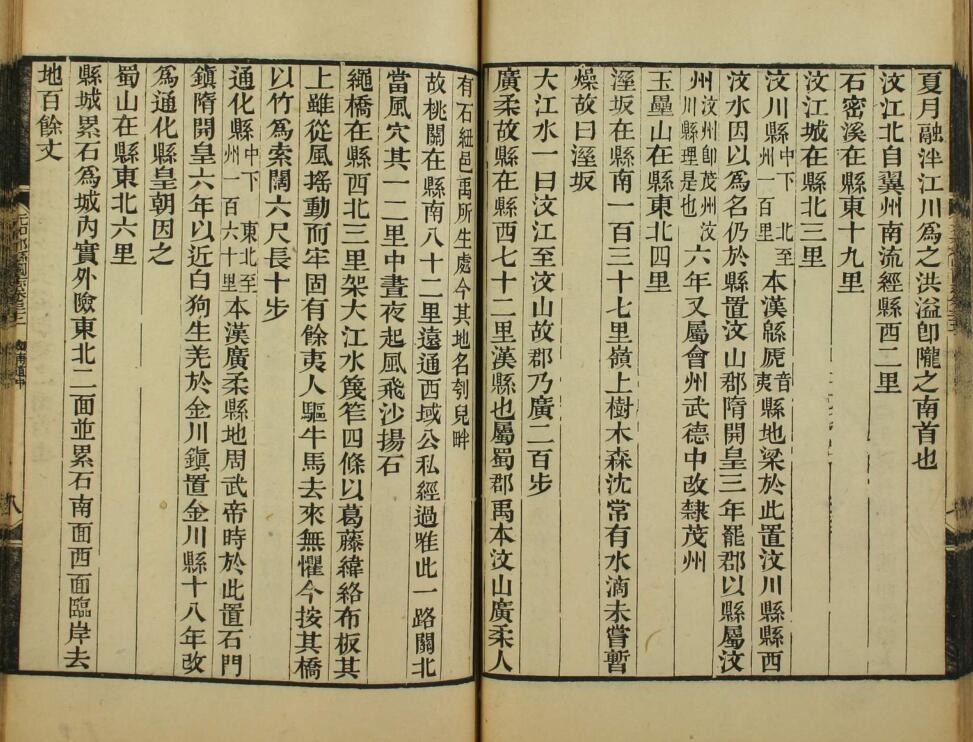 夏月融泮江川爲之洪溢卽隴之南首也
汶江北自翼州南流經縣西二里
石密溪在縣東十九里
汶江城在縣北三里
汶川縣中下 北至州一百里 本漢緜虒音夷縣地梁於此置汶川縣縣西
汶水因以爲名仍於縣置汶山郡隋開皇三年罷郡以縣屬汶
州汶州卽茂州汶川縣理是也 六年又屬會州武德中改隸茂州
玉壘山在縣東北四里
溼坂在縣南一百三十七里嶺上樹木森沈常有水滴未嘗暫
燥故曰溼坂
大江水一曰汶江至汶山故郡乃廣二百步
廣柔故縣在縣西七十二里漢縣也屬蜀郡禹本汶山廣柔人
有石紐邑禹所生處今其地名刳兒畔
故桃關在縣南八十二里遠通西域公私經過唯此一路關北
當風穴其一二里中晝夜起風飛沙揚石
繩橋在縣西北三里架大江水篾笮四條以葛藤緯絡布板其
上雖從風搖動而牢固有餘夷人驅牛馬去來無懼今按其橋
以竹爲索闊六尺長十步
通化縣中下 東北至州一百六十里 本漢廣柔縣地周武帝時於此置石門
鎮隋開皇六年以近白狗生羌於金川鎮置金川縣十八年改
爲通化縣皇朝因之
蜀山在縣東北六里
縣城累石爲城內實外險東北二面並累石南面西面臨岸去
地百餘丈